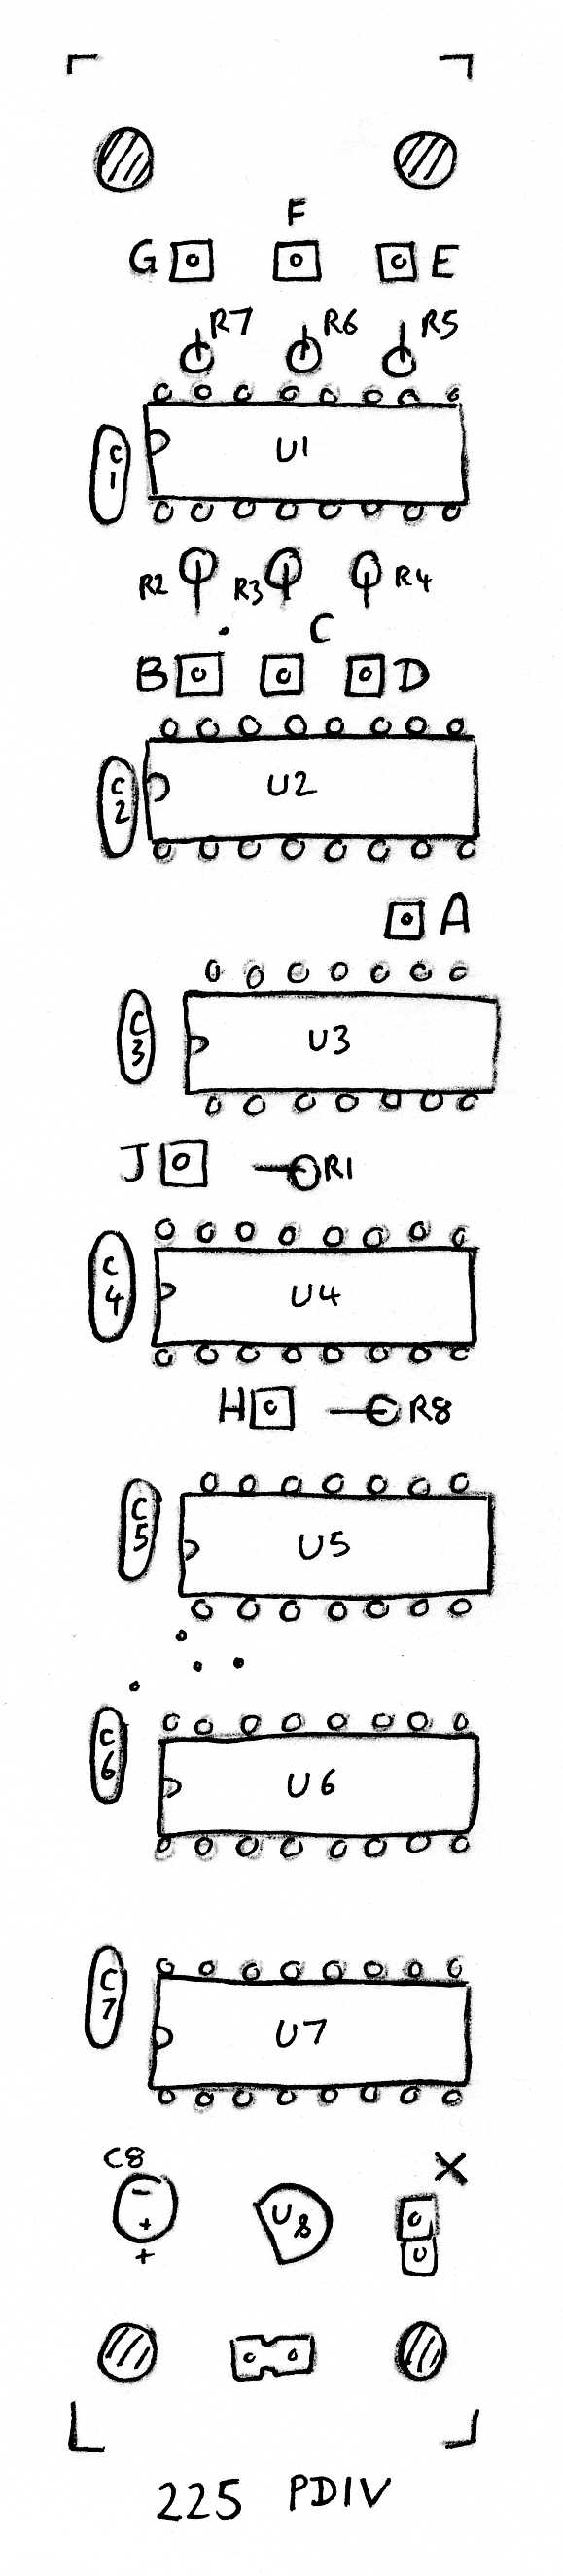 F
G E
R7 R6 R5
C1 U1
R2 R3 R4
C
B D
C2 U2
A
C3 U3
J R1
C4 U4
H R8
C5 U5
C6 U6
C7 U7
C8 X
-
+ U8
+
225 PDIV